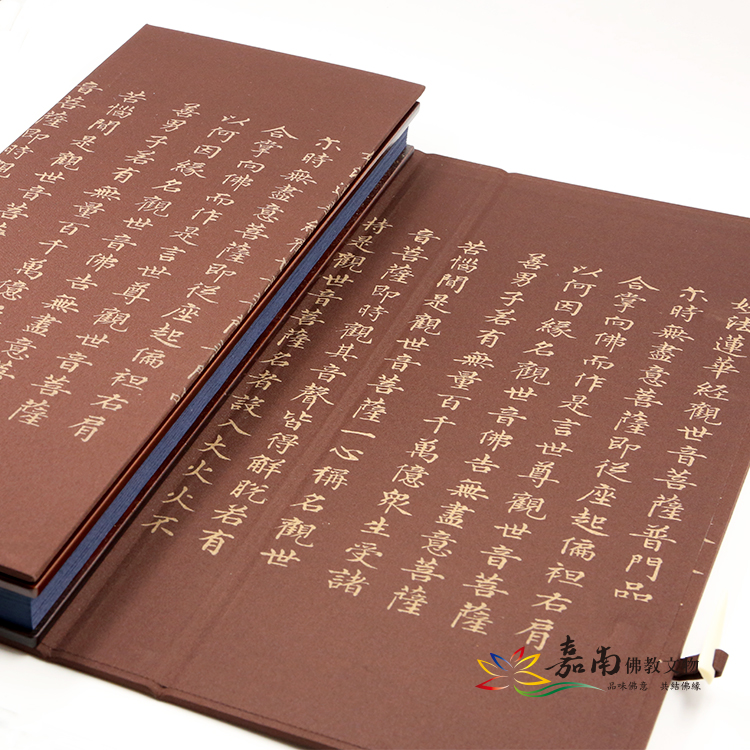 妙法蓮華經觀世音菩薩普門品
尒時無盡意菩薩即從座起偏袒右肩
合掌向佛而作是言世尊觀世音菩薩
以何因緣名觀世音佛告無盡意菩薩
善男子若有無量百千萬億眾生受諸
苦惱聞是觀世音菩薩一心稱名觀世
音菩薩即時觀其音聲皆得解脫若有
持是觀世音菩薩名者設入大火火不
尒時無盡意菩薩即從座起偏袒右肩
合掌向佛而作是言世尊觀世音菩薩
以何因緣名觀世音佛告無盡意菩薩
善男子若有無量百千萬億
苦惱聞是觀世音菩薩
音菩薩即時觀
嘉南佛教文物
品味佛意 共結佛緣